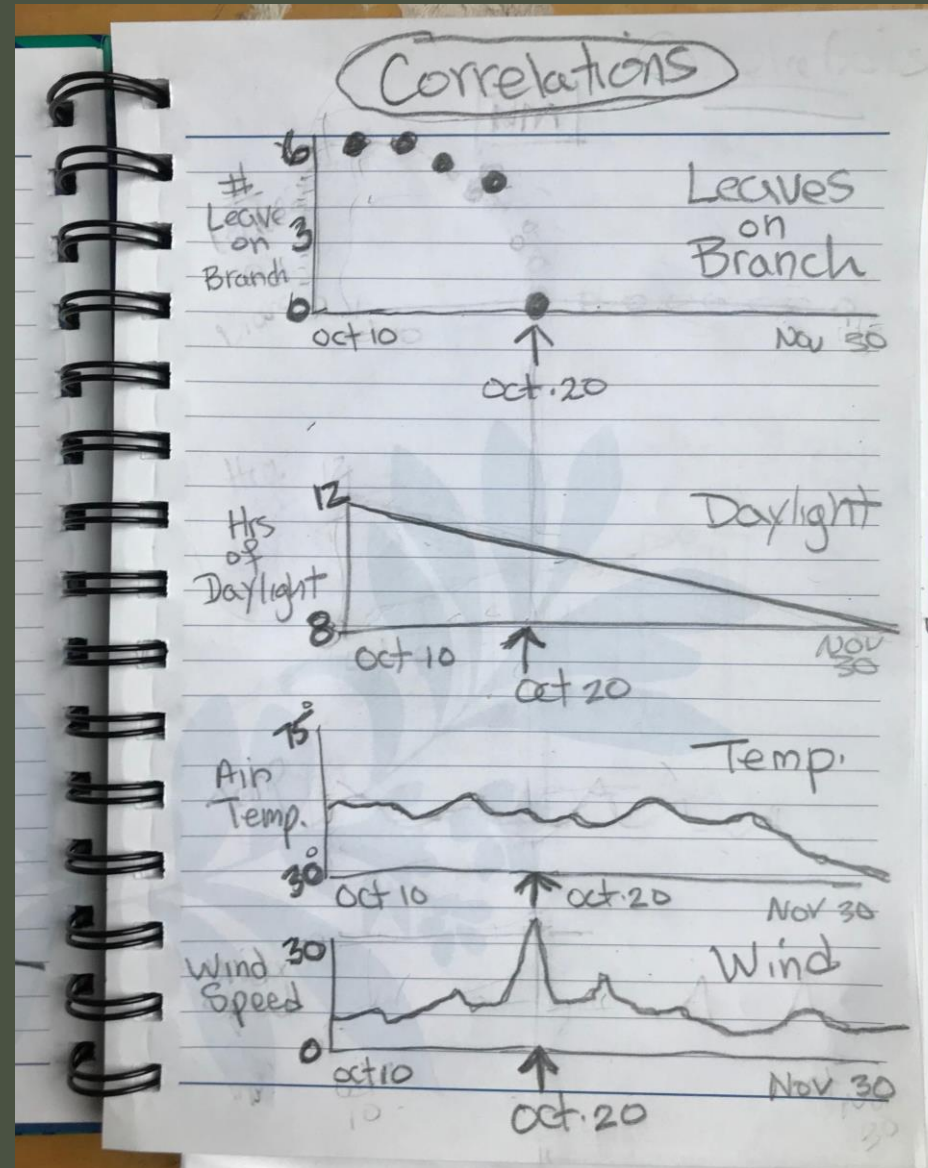 Correlations
6
#
Leave
on
Branch
3
0
Leaves
on
Branch
Oct 10
Nov 30
Oct. 20
12
Hrs
of
Daylight
8
Daylight
Oct 10
Nov
30
Oct 20
75°
Air
Temp.
30°
Temp.
Oct 10
Oct. 20
Nov 30
Wind
Speed
30
0
Wind
Oct 10
Nov 30
Oct. 20